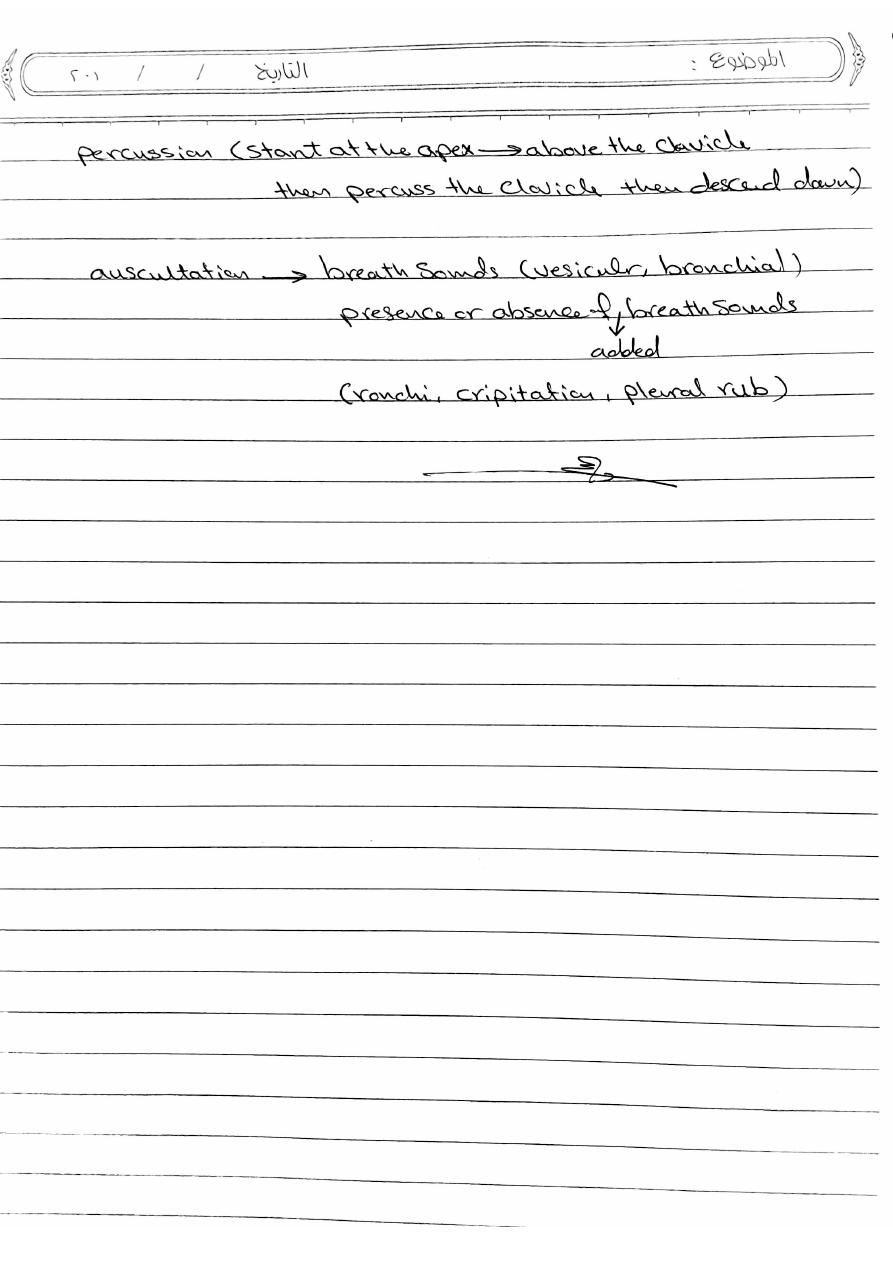 الموضوع :
التاريخ / / ٢٠١
percussion (start at the apex → above the clavicle
then percuss the clavicle then descend down)
auscultation → breath sounds (vesiculr, bronchial)
presence or absence of, breath sounds
↓
added
(ronchi, cripitation, pleural rub)